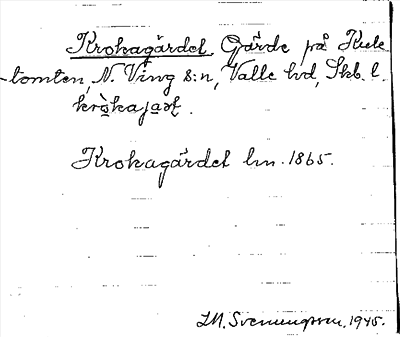 Krokagärdet. Gärde på Kule
-tomten, N. Ving s:n, Valle hd, Skb. l.
Krokagärdet lm. 1865.
I.M. Svenungsson, 1945.